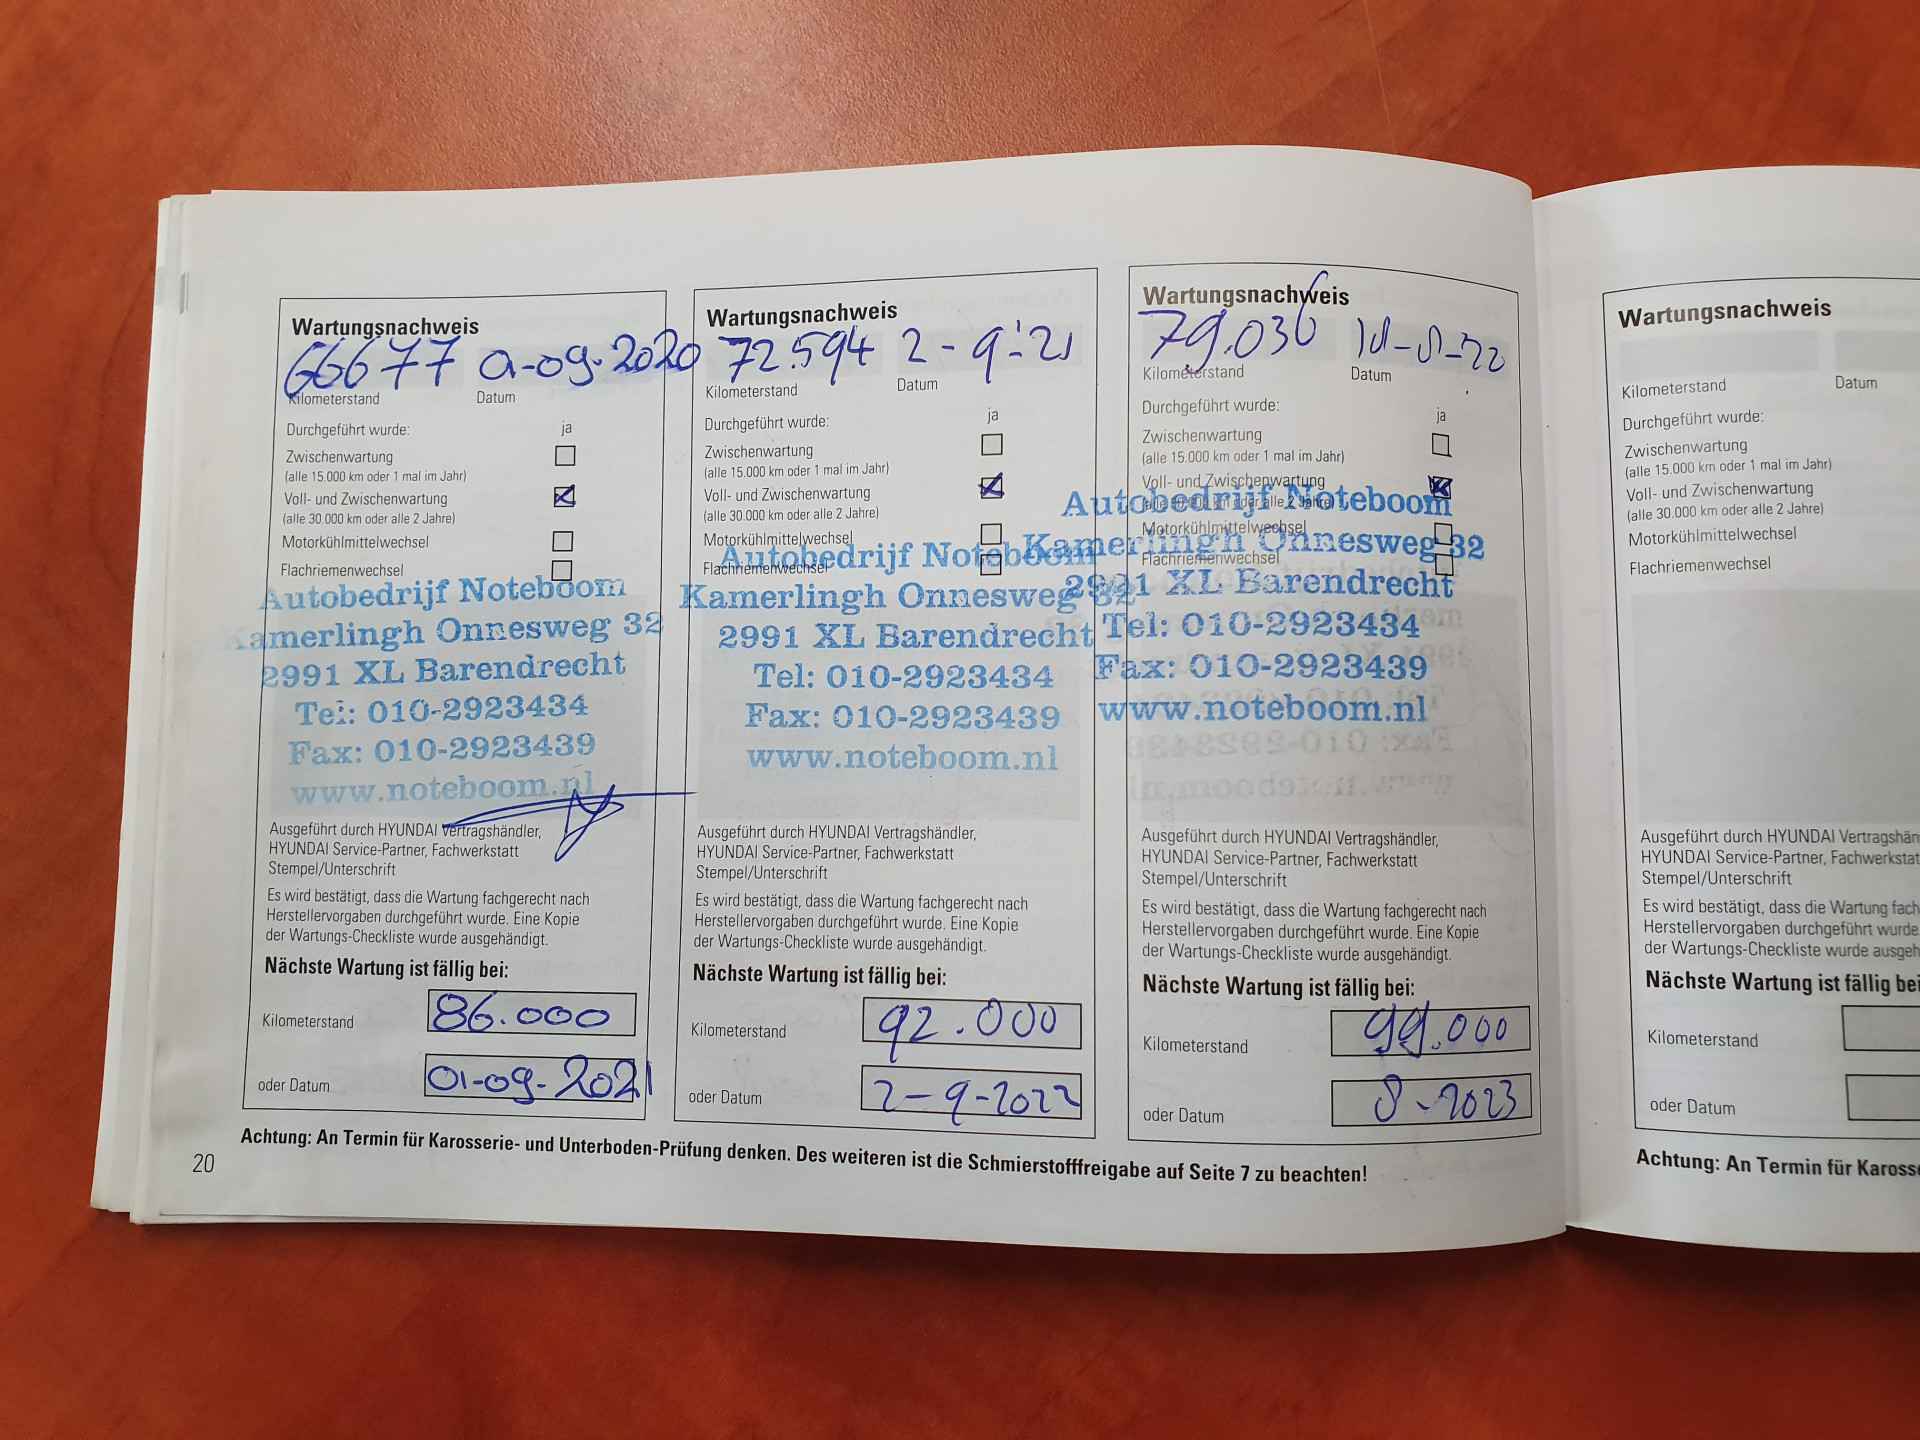 Wartungsnachweis
66677 01-09-2020
Kilometerstand Datum
Durchgeführt wurde: ja
Zwischenwartung
(alle 15.000 km oder 1 mal im Jahr)
Voll- und Zwischenwartung
(alle 30.000 km oder alle 2 Jahre)
Motorkühlmittelwechsel
Flachriemenwechsel
Autobedrijf Noteboom
Kamerlingh Onnesweg 32
2991 XL Barendrecht
Tel: 010-2923434
Fax: 010-2923439
www.noteboom.nl
Ausgeführt durch HYUNDAI Vertragshändler,
HYUNDAI Service-Partner, Fachwerkstatt
Stempel/Unterschrift
Es wird bestätigt, dass die Wartung fachgerecht nach
Herstellervorgaben durchgeführt wurde. Eine Kopie
der Wartungs-Checkliste wurde ausgehändigt.
Nächste Wartung ist fällig bei:
Kilometerstand 86.000
oder Datum 01-09-2021
Wartungsnachweis
72.594 2-9-'21
Kilometerstand Datum
Durchgeführt wurde: ja
Zwischenwartung
(alle 15.000 km oder 1 mal im Jahr)
Voll- und Zwischenwartung
(alle 30.000 km oder alle 2 Jahre)
Motorkühlmittelwechsel
Flachriemenwechsel
Autobedrijf Noteboom
Kamerlingh Onnesweg 32
2991 XL Barendrecht
Tel: 010-2923434
Fax: 010-2923439
www.noteboom.nl
Ausgeführt durch HYUNDAI Vertragshändler,
HYUNDAI Service-Partner, Fachwerkstatt
Stempel/Unterschrift
Es wird bestätigt, dass die Wartung fachgerecht nach
Herstellervorgaben durchgeführt wurde. Eine Kopie
der Wartungs-Checkliste wurde ausgehändigt.
Nächste Wartung ist fällig bei:
Kilometerstand 92.000
oder Datum 2-9-2022
Wartungsnachweis
79.036
Kilometerstand Datum
Durchgeführt wurde: ja
Zwischenwartung
(alle 15.000 km oder 1 mal im Jahr)
Voll- und Zwischenwartung
(alle 30.000 km oder alle 2 Jahre)
Motorkühlmittelwechsel
Flachriemenwechsel
Autobedrijf Noteboom
Kamerlingh Onnesweg 32
2991 XL Barendrecht
Tel: 010-2923434
Fax: 010-2923439
www.noteboom.nl
Ausgeführt durch HYUNDAI Vertragshändler,
HYUNDAI Service-Partner, Fachwerkstatt
Stempel/Unterschrift
Es wird bestätigt, dass die Wartung fachgerecht nach
Herstellervorgaben durchgeführt wurde. Eine Kopie
der Wartungs-Checkliste wurde ausgehändigt.
Nächste Wartung ist fällig bei:
Kilometerstand 99.000
oder Datum 8-2023
Achtung: An Termin für Karosserie- und Unterboden-Prüfung denken. Des weiteren ist die Schmierstofffreigabe auf Seite 7 zu beachten!
20
Wartungsnachweis
Kilometerstand Datum
Durchgeführt wurde:
Zwischenwartung
(alle 15.000 km oder 1 mal im Jahr)
Voll- und Zwischenwartung
(alle 30.000 km oder alle 2 Jahre)
Motorkühlmittelwechsel
Flachriemenwechsel
Ausgeführt durch HYUNDAI Vertragshän
HYUNDAI Service-Partner, Fachwerkstat
Stempel/Unterschrift
Es wird bestätigt, dass die Wartung fach
Herstellervorgaben durchgeführt wurde.
der Wartungs-Checkliste wurde ausgeh
Nächste Wartung ist fällig bei
Kilometerstand
oder Datum
Achtung: An Termin für Karosse